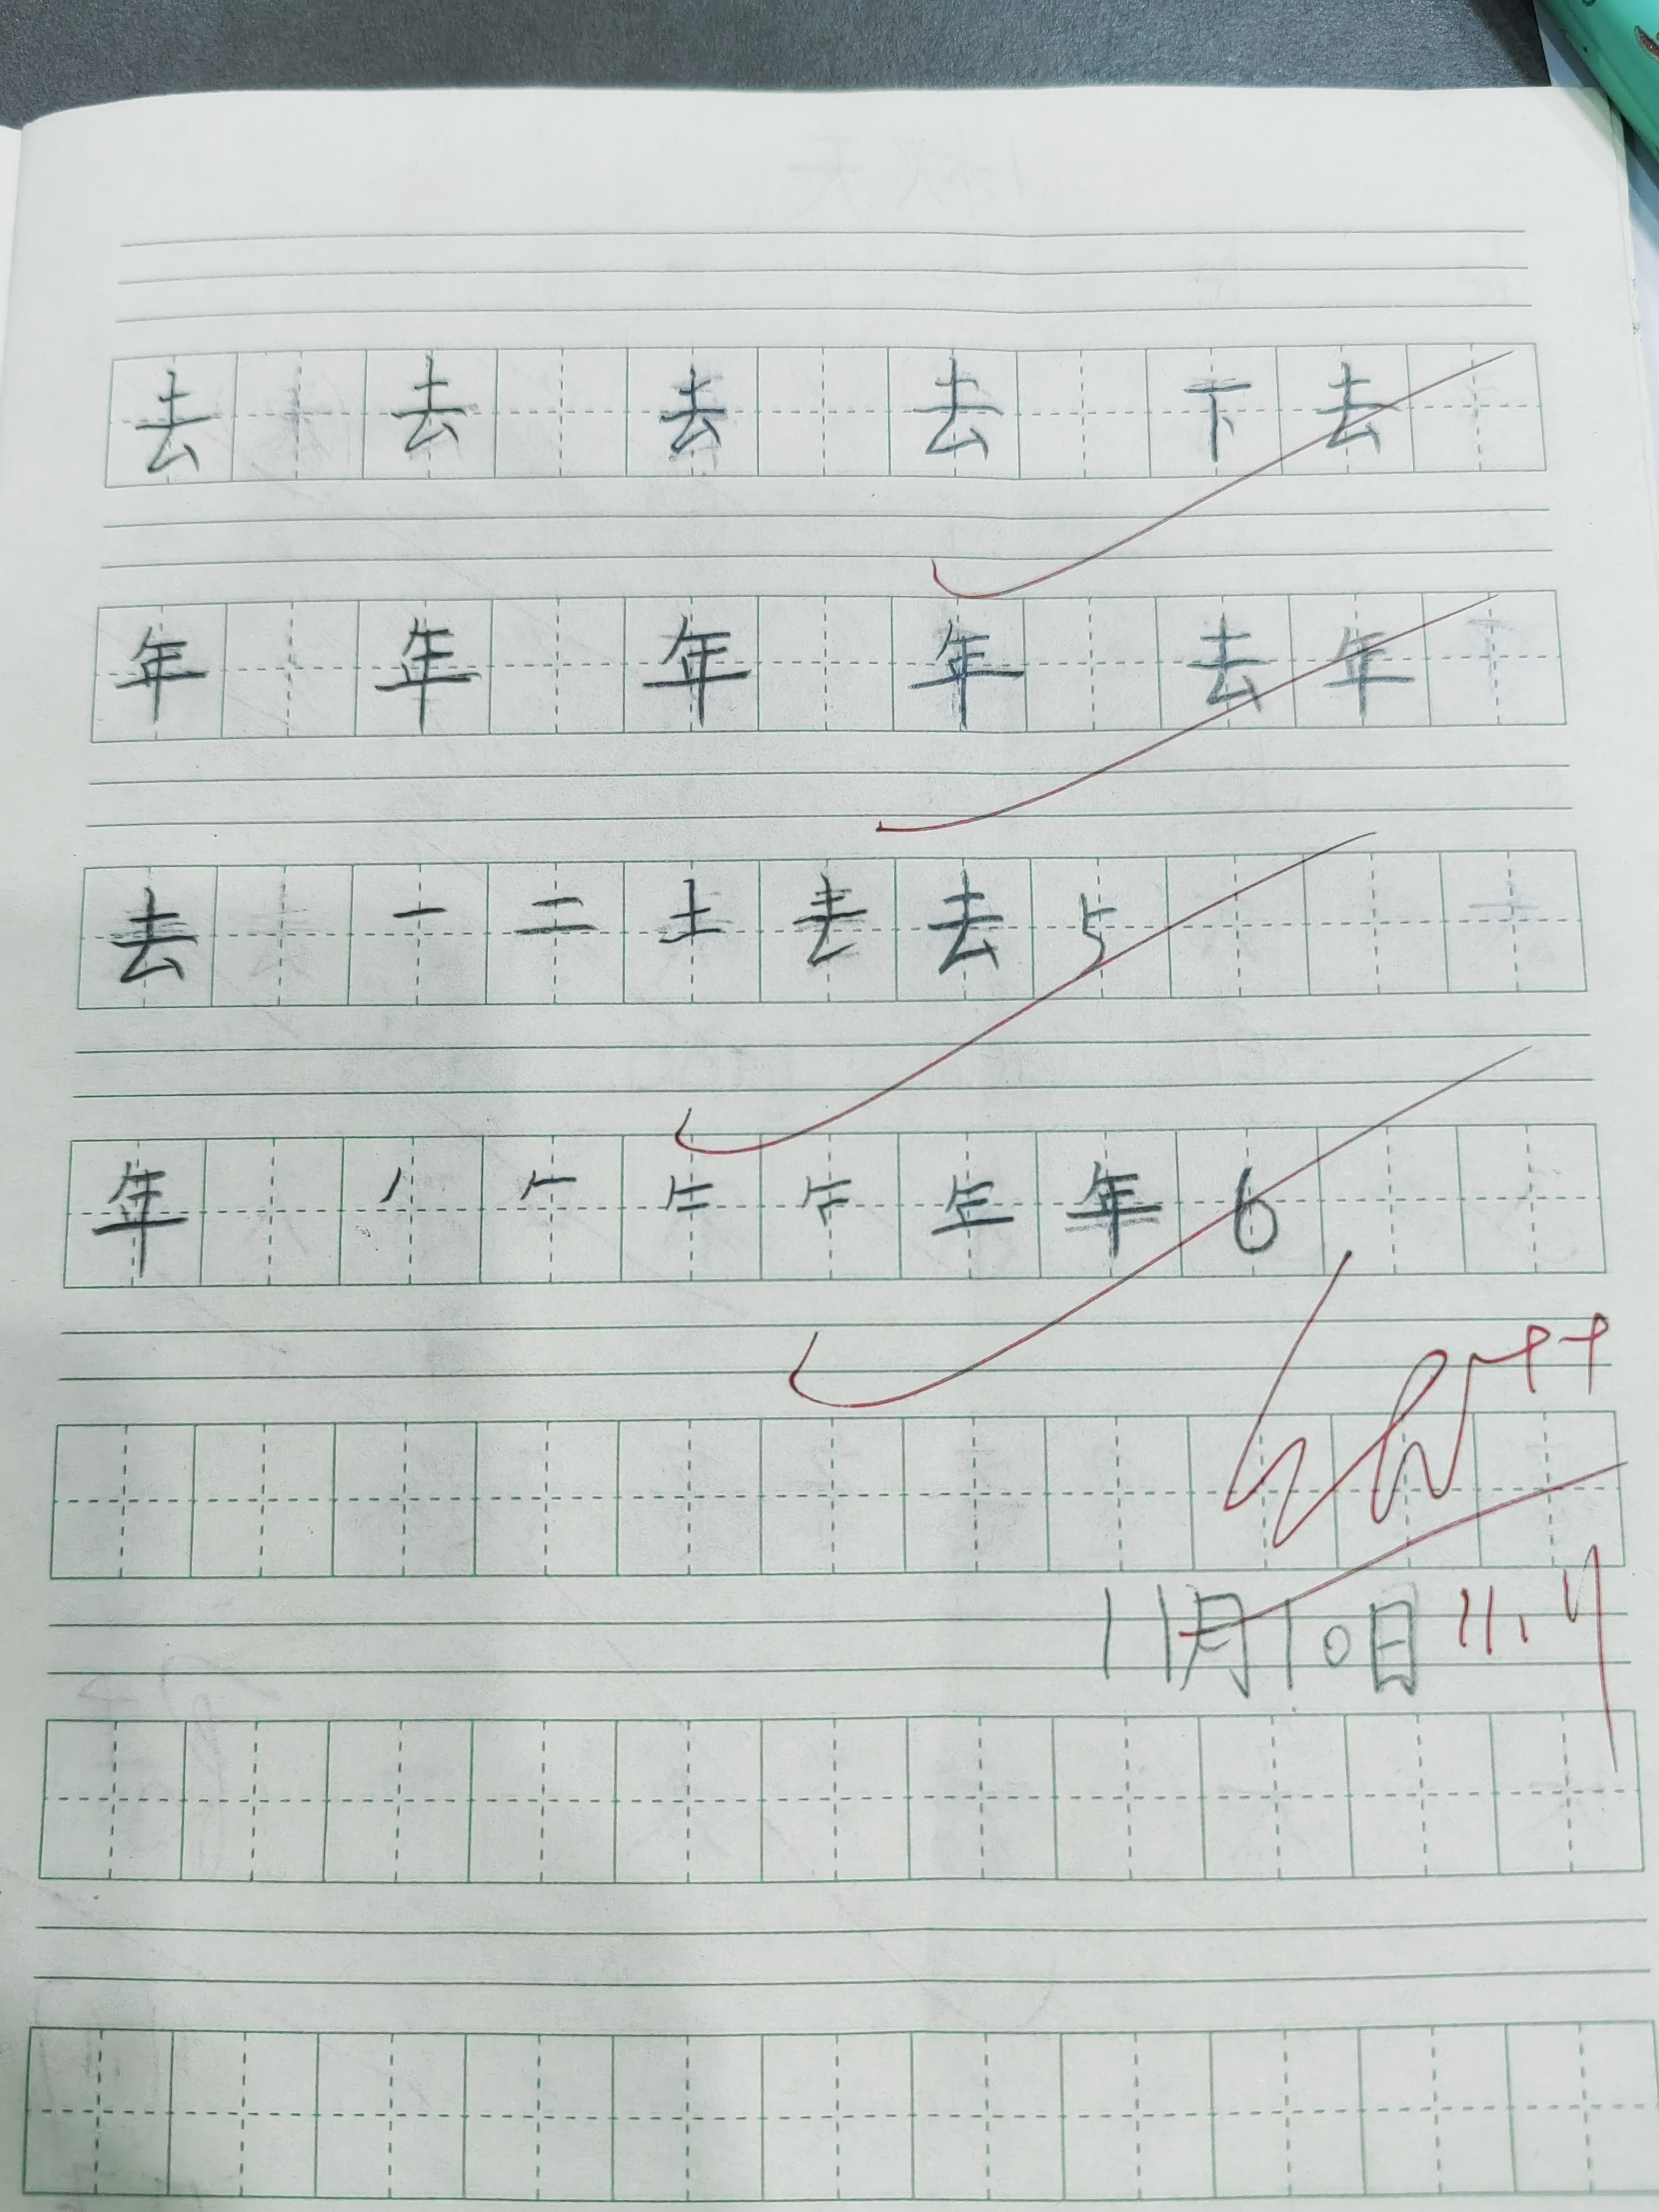 去 去 去 去 下去
年 年 年 年 去年
去 一 二 土 去 5
年 丿 𠂉 年 6
11月10日 11.9